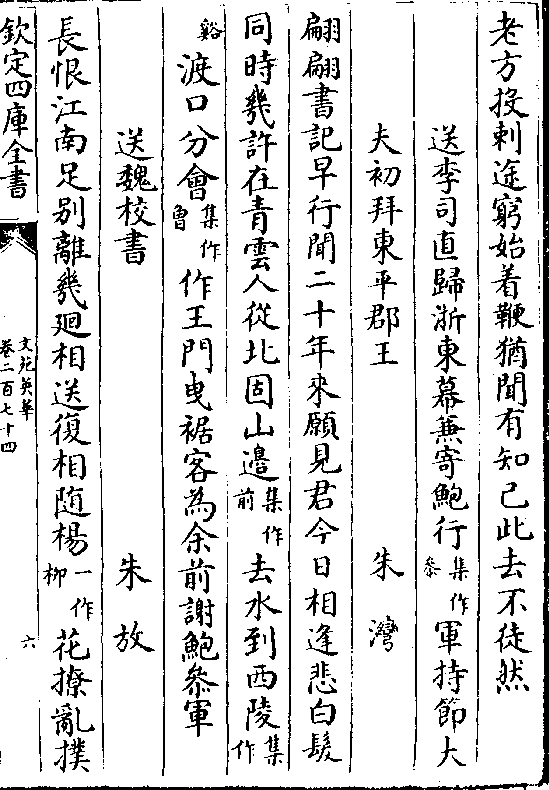 老方投刺途窮始着鞭猶聞有知己此去不徒然
送李司直歸浙東幕兼寄鮑行集作叅軍持節大
夫初拜東平郡王　朱灣
翩翩書記早行聞二十年來願見君今日相逢悲白髮
同時幾許在青雲人從北固山邉集作前去水到西陵集作
谿渡口分會集作魯作王門曳裾客為余前謝鮑叅軍
送魏校書　朱放
長恨江南足别離幾廻相送復相随楊一作柳花撩亂撲
欽定四庫全書
文苑英華
卷二百七十四
六